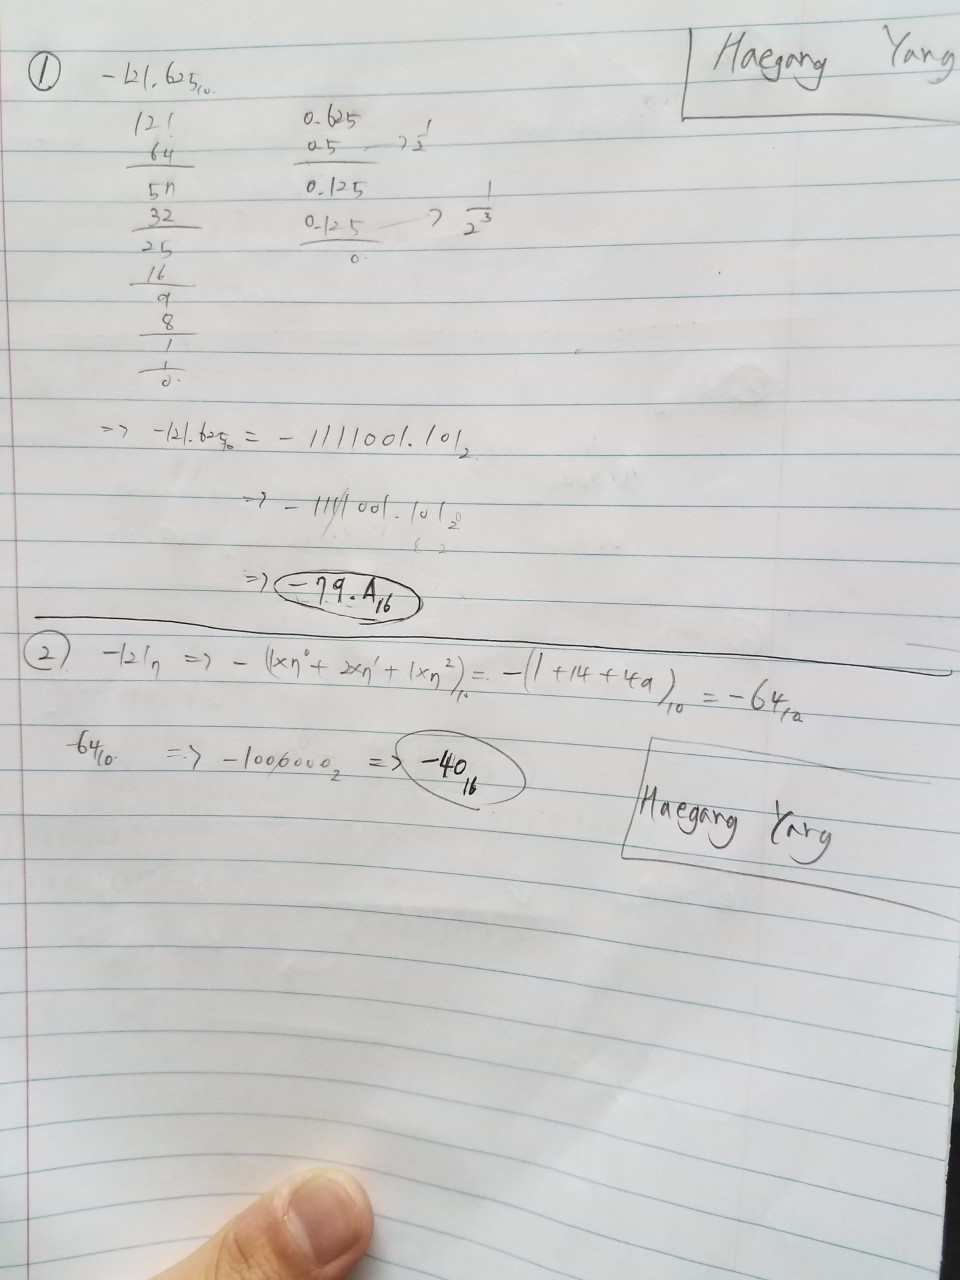 Haegang Yang
① -121.625₁₀
121 0.625
64 0.5 → 1/2
57 0.125
32 0.125 → 1/2³
25 0.
16
9
8
1
1
0.
=> -121.625₁₀ = -1111001.101₂
=> -111/1001.101₂
=> -79.A₁₆
② -121₇ => -(1×7⁰ + 2×7¹ + 1×7²)₁₀ = -(1+14+49)₁₀ = -64₁₀
-64₁₀. => -1000000₂ => -40₁₆
Haegang Yang